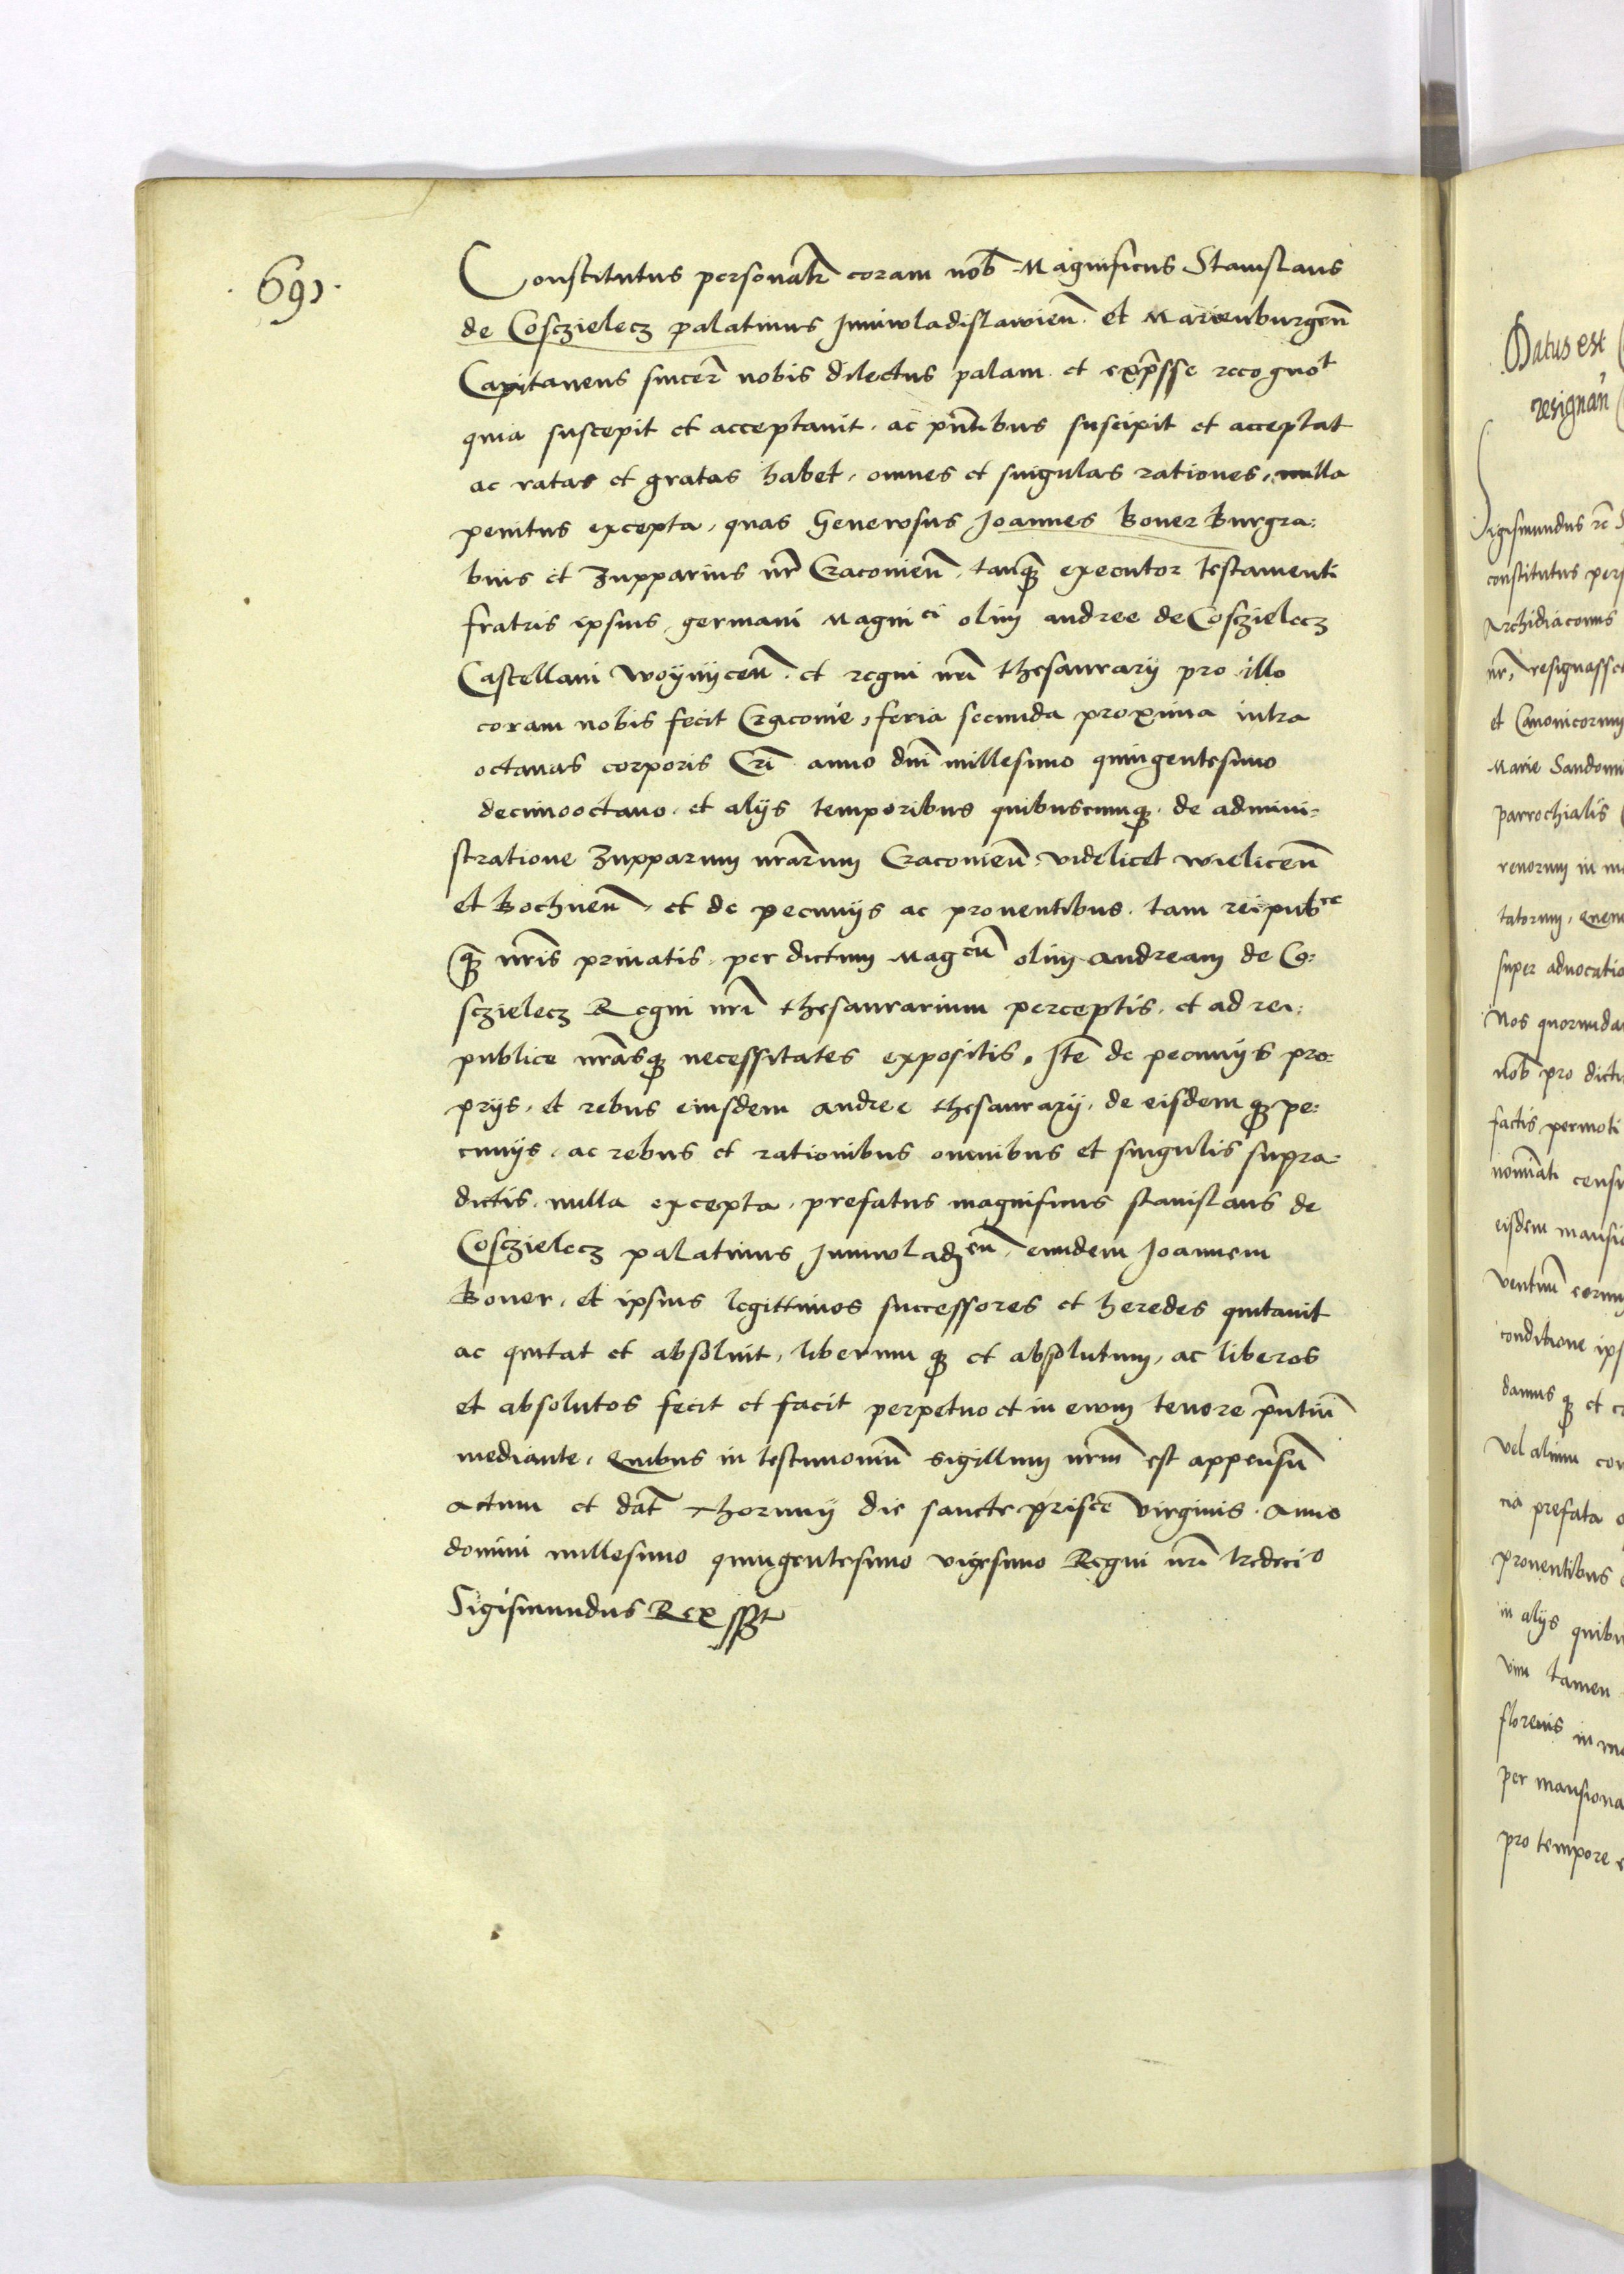 .691.
Constitutus personalr coram nob Magnificus Stanislaus
de Cosczielecz palatinus Juniwladislawien. et Marienburgen
Capitaneus sincer nobis dilectus palam et expsse recognot
quia suscepit et acceptavit. ac pntibus suscipit et acceptat
ac ratas et gratas habet, omnes et singulas rationes, nulla
penitus excepta, quas Generosus Joannes Boner Burgra:
bius et Zupparius nr Cracovien, tanq executor testamenti
fratris ipsius germani Magnici olim andree de Cosczielecz
Castellani woynicen. et regni nri thesaurarij pro illo
coram nobis fecit Cracovie, feria secunda proxima intra
octavas corporis Cri anno dni millesimo quingentesimo
decimooctavo. et alijs temporibus quibuscunq. de admini-
stratione Zupparum nrarum Cracovien, videlicet wielicen
et Bochnen, et de pecunijs ac proventibus. tam reipubce
q nris privatis, per dictum Magcu olim andream de Co:
sczielecz Regni nri thesaurarium perceptis. et ad rei:
publice nrasq necessitates expositis, Ite de pecunijs pro:
prijs, et rebus eiusdem andree thesaurarij, de eisdem q pe:
cunijs, ac rebus et rationibus omnibus et singulis supra:
dictis, nulla excepta, prefatus magnificus stanislaus de
Cosczielecz palatinus Juniwladzen, eundem Joannem
Boner, et ipsius legittimos successores et heredes quitavit
ac quitat et absolvit, liberum q et absolutum, ac liberos
et absolutos fecit et facit perpetuo et in evum tenore pntiu
mediante, Quibus in testimoniu sigillum nrm est appensu
actum et dat Thorunij die sancte prisce virginis. Anno
domini millesimo quingentesimo vigesimo Regni nri tredecio
Sigismundus Rex sst
Datus est
resignan
Sigismundus re
constitutus per
Archidiaconus
nr, resignasset
et Canonicorum
Marie Sandomi
parrochialis
renorum in
tatorum, quem
super advocatio
Nos quorunda
nob pro dicti
factis permoti
nominati censu
eisdem mansio
ventum eorum
conditione ips
damus q et
vel alium con
cia prefata
proventibus
in alijs quibu
vim tamen
florenis in
per mansiona
pro tempore